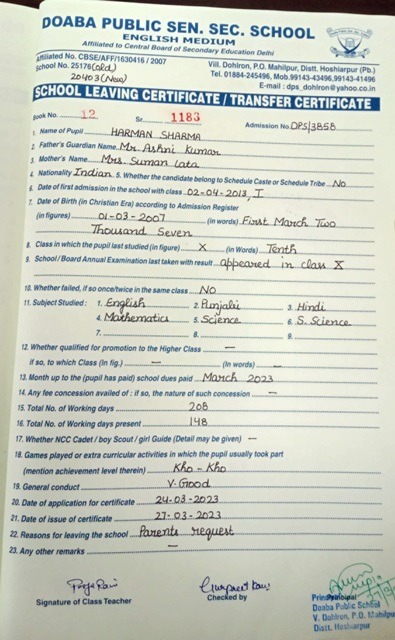 DOABA PUBLIC SEN. SEC. SCHOOL
ENGLISH MEDIUM
Affiliated to Central Board of Secondary Education Delhi
Affiliated No. CBSE/AFF/1630416 / 2007
School No. 25176 (old)
20403 (New)
Vill. Dohlron, P.O. Mahilpur, Distt. Hoshiarpur (Pb.)
Tel. 01884-245496, Mob.99143-43496,99143-41496
E-mail : dps_dohlron@yahoo.co.in
SCHOOL LEAVING CERTIFICATE / TRANSFER CERTIFICATE
Book No. 12 Sr. 1183 Admission No. DPS/3858
1. Name of Pupil HARMAN SHARMA
2. Father's Guardian Name Mr. Ashni Kumar
3. Mother's Name Mrs. Suman Lata
4. Nationality Indian 5. Whether the candidate belong to Schedule Caste or Schedule Tribe No
6. Date of first admission in the school with class 02-04-2013, I
7. Date of Birth (in Christian Era) according to Admission Register
(in figures) 01-03-2007 (in words) First March Two
Thousand Seven
8. Class in which the pupil last studied (in figure) X (in Words) Tenth
9. School / Board Annual Examination last taken with result appeared in class X
10. Whether failed, if so once/twice in the same class NO
11. Subject Studied : 1. English 2. Punjabi 3. Hindi
4. Mathematics 5. Science 6. S. Science
7. 8. 9.
12. Whether qualified for promotion to the Higher Class —
if so, to which Class (in fig.) — (in words) —
13. Month up to the (pupil has paid) school dues paid March 2023
14. Any fee concession availed of : if so, the nature of such concession —
15. Total No. of Working days 208
16. Total No. of Working days present 148
17. Whether NCC Cadet / boy Scout / girl Guide (Detail may be given) —
18. Games played or extra curricular activities in which the pupil usually took part
(mention achievement level therein) Kho - Kho
19. General conduct V. Good
20. Date of application for certificate 24-03-2023
21. Date of issue of certificate 27-03-2023
22. Reasons for leaving the school Parents request
23. Any other remarks —
Signature of Class Teacher
Gurpreet Kaur
Checked by
Principal
Doaba Public School
V. Dohlron, P.O. Mahilpur
Distt. Hoshiarpur